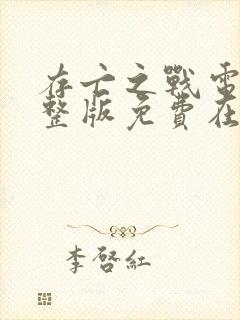 存亡之戰電
整版免費在
李啓紅